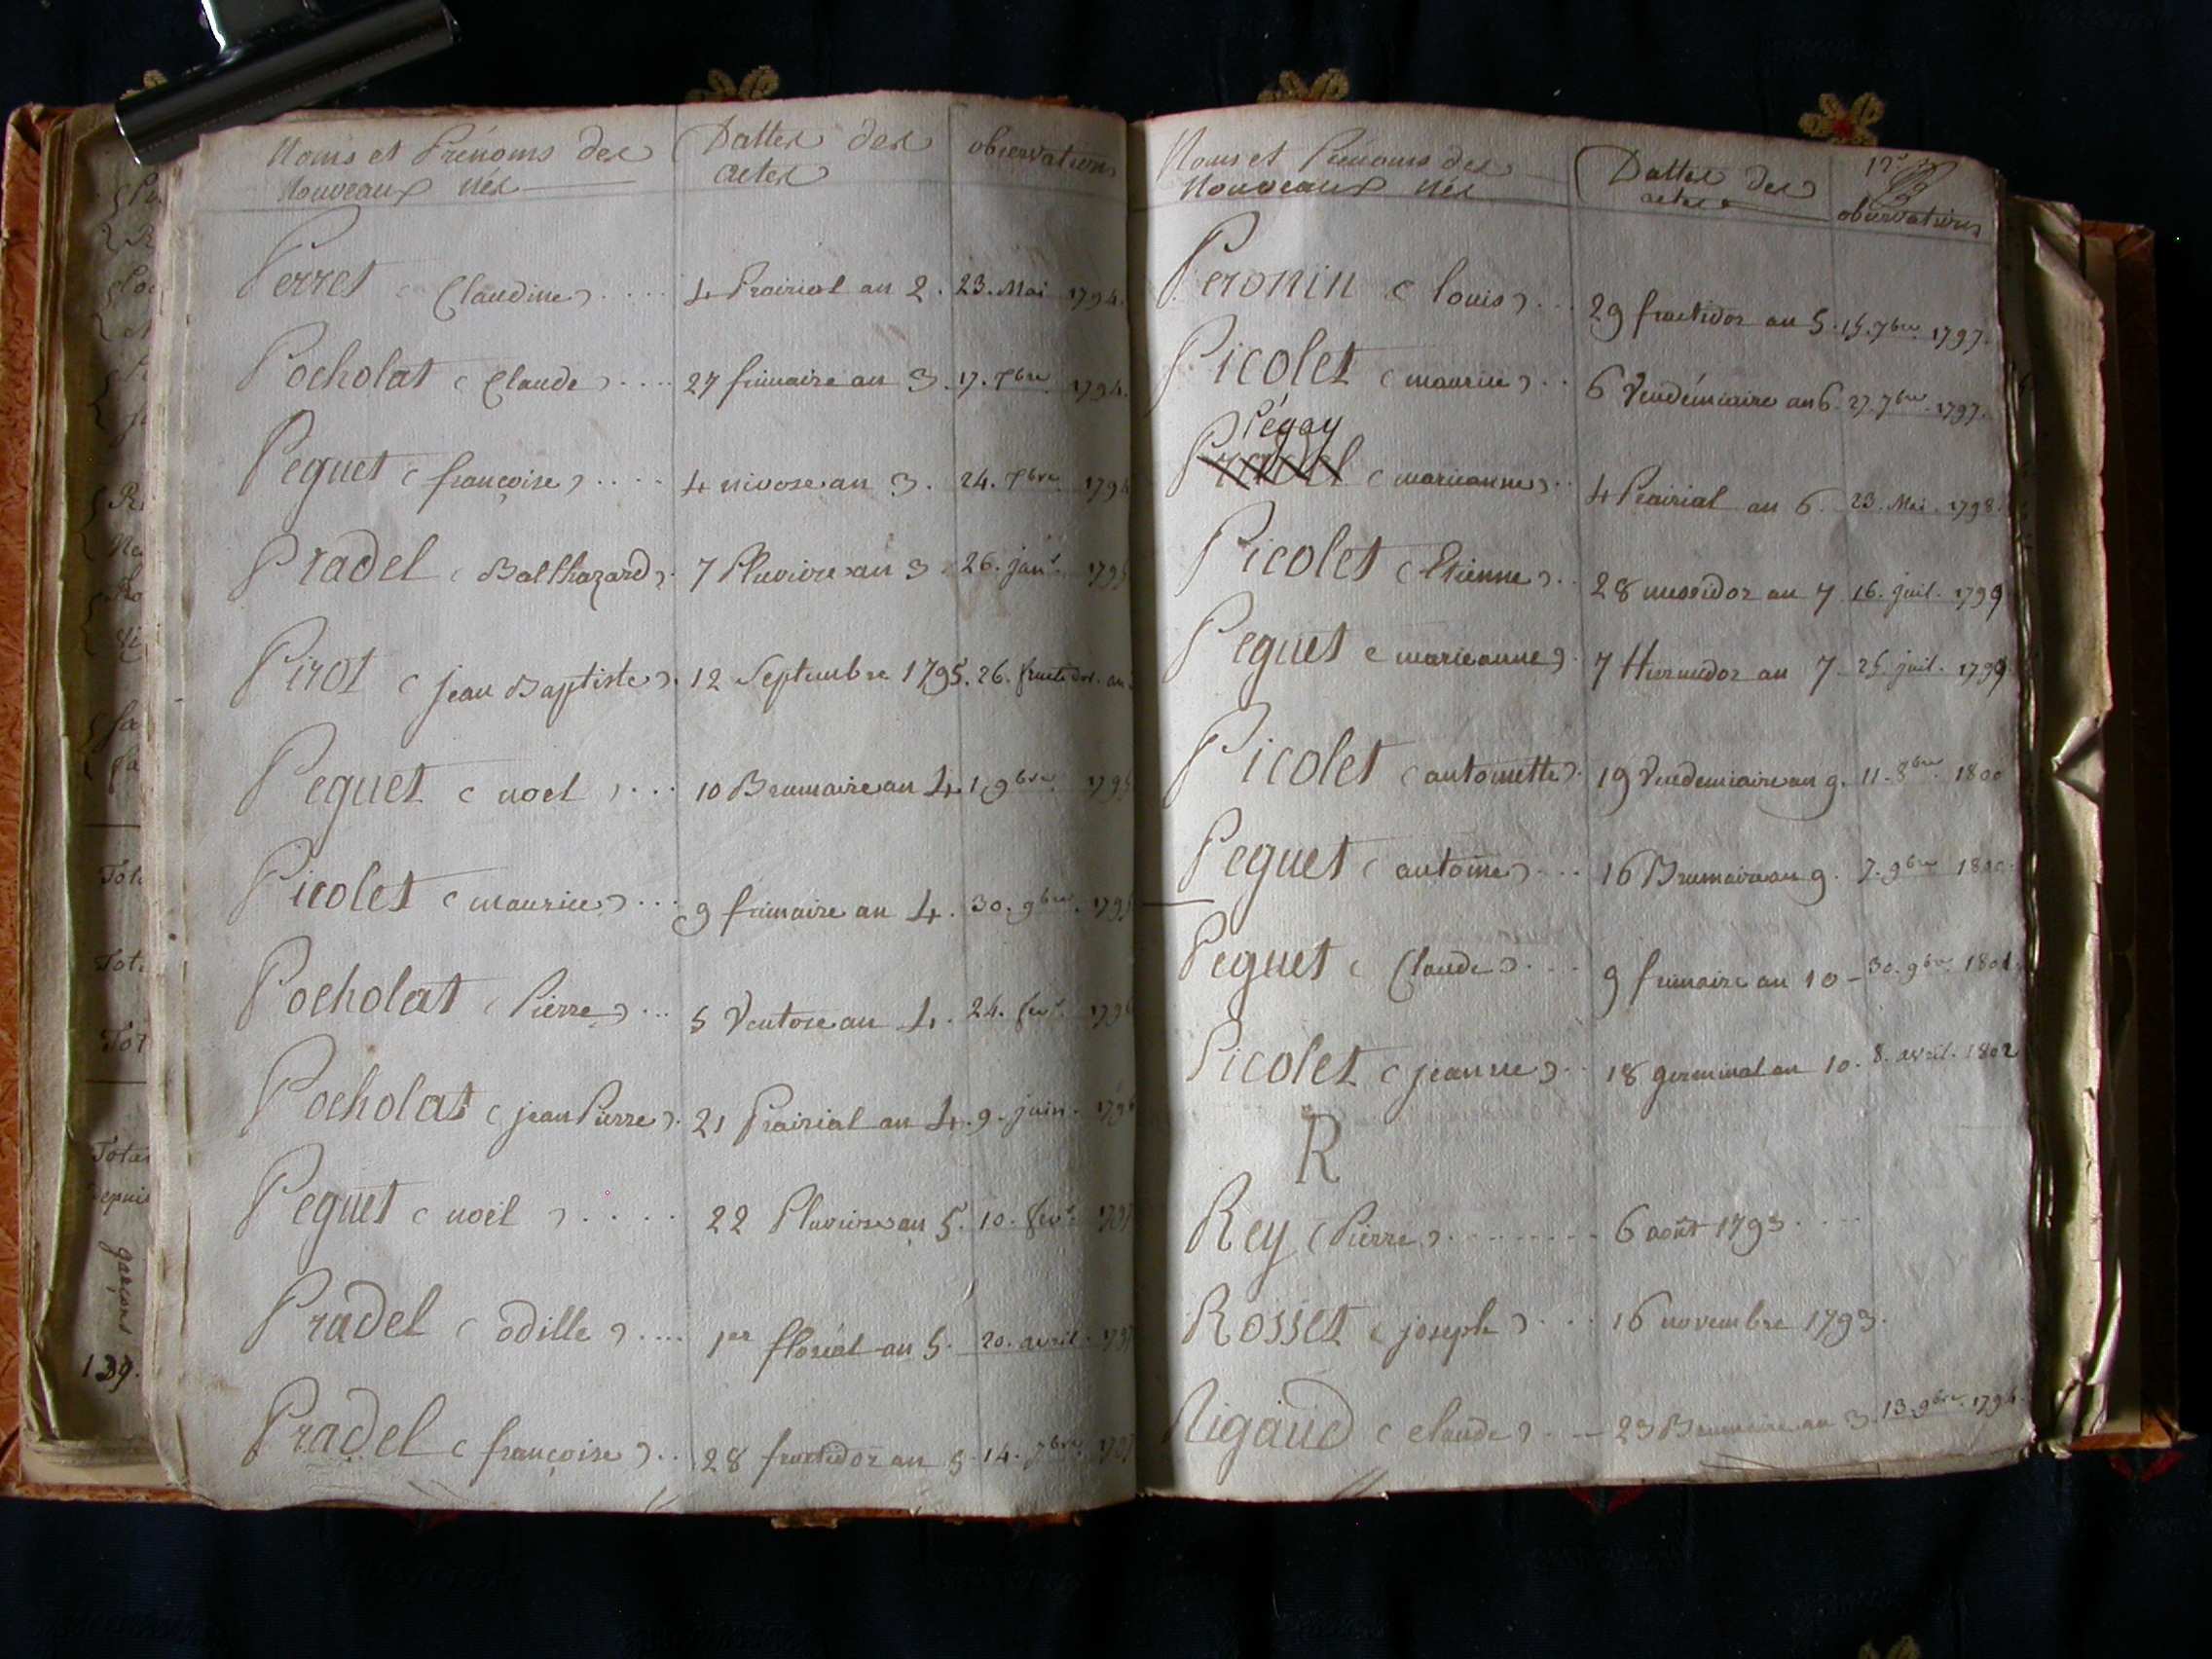 Noms et Prénoms des
Nouveaux nés
Dattes des
actes
observations
Perret (Claudine) .... 4 Prairial an 2. 23. Mai 1794.
Pocholat (Claude) .... 27 frimaire an 3. 17. Xbre 1794.
Peguet (françoise) .... 4 nivose an 3. 24. Xbre 179
Pradel (Balthazard). 7 Pluviose an 3. 26. janr. 179
Pirot (jean Baptiste). 12 Septembre 1795. 26. fructidor. an
Peguet (noel) .... 10 Brumaire an 4. 1. 9bre 1795
Picolet (maurice) ... 9 frimaire an 4. 30. 9bre. 1795
Pocholat (Pierre) ... 5 Ventose an 4. 24. fevr. 179
Pocholat (jean Pierre). 21 Prairial an 4. 9. juin. 179
Peguet (noël) .... 22 Pluviose an 5. 10. fevr. 1797
Pradel (odille) .... 1er floréal an 5. 20. avril. 1797
Pradel (françoise) .. 28 fructidor an 5. 14. 7bre 1797
Noms et Prénoms des
Nouveaux nés
Dattes des
actes
observations
Peronin (louis) ... 29 fructidor an 5. 15. 7bre 1797.
Picolet (maurice) .. 6 Vendémiaire an 6. 27. 7bre. 1797.
Pégay
Pradel (marieanne) .. 4 Prairial an 6. 23. Mai. 1798.
Picolet (Etienne) .. 28 messidor an 7 16. juil. 1799
Peguet (marieanne). 7 thermidor an 7. 25. juil. 1799
Picolet (antoinette). 19 Vendemiaire an 9. 11. 8bre. 1800
Peguet (antoine) ... 16 Brumaire an 9. 7. 9bre 1800.
Peguet (Claude) ... 9 frimaire an 10 - 30. 9bre. 1801.
Picolet (jeanne) .. 18 germinal an 10. 8. avril. 1802
R
Rey (Pierre) ........ 6 août 1793 ....
Rosset (joseph) ... 16 novembre 1793.
Rigaud (claude) . — 23 Brumaire an 3. 13. 9bre. 1794.
Tot
Tot
Tot
Total
depuis
garçons
139.